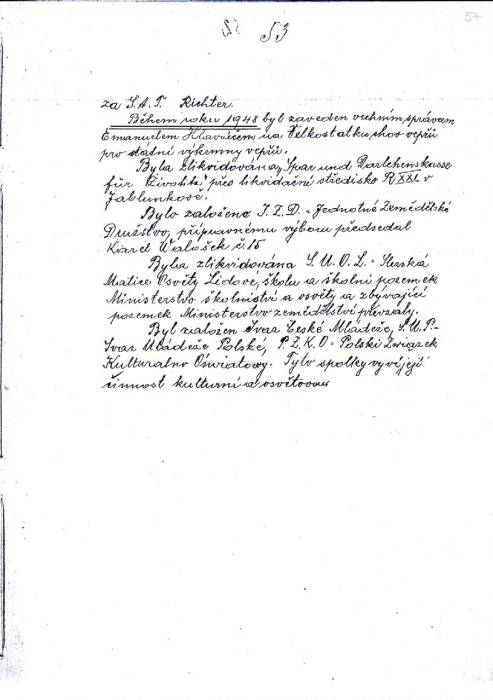 53
57
za S.A.T. Richter.
Během roku 1948 byl zaveden vrchním správcem
Emanuelem Hlaváčem na Velkostatku chov vepřů
pro státní výkrmny vepřů.
Byla zlikvidována „Spar und Darlehenskasse
für Živohtě přes likvidační středisko RXXI v
Jablunkově.
Bylo založeno J.Z.D. - Jednotné Zemědělské
Družstvo, přípravnému výboru předsedal
Karel Walošek č.15
Byla zlikvidována S.M.O.L. - Slezská
Matice Osvěty Lidové, školu a školní pozemek
Ministerstvo školnistvi a osvěty a zbývající
pozemek Ministerstvo zemědělství převzaly.
Byl založen Svaz České Mládeže, S.M.P.-
Svaz Mládeže Polské, P.Z.K.O - Polski Związek
Kulturalno Oświatowy. Tyto spolky vyvíjejí
činnost kulturní a osvětovou